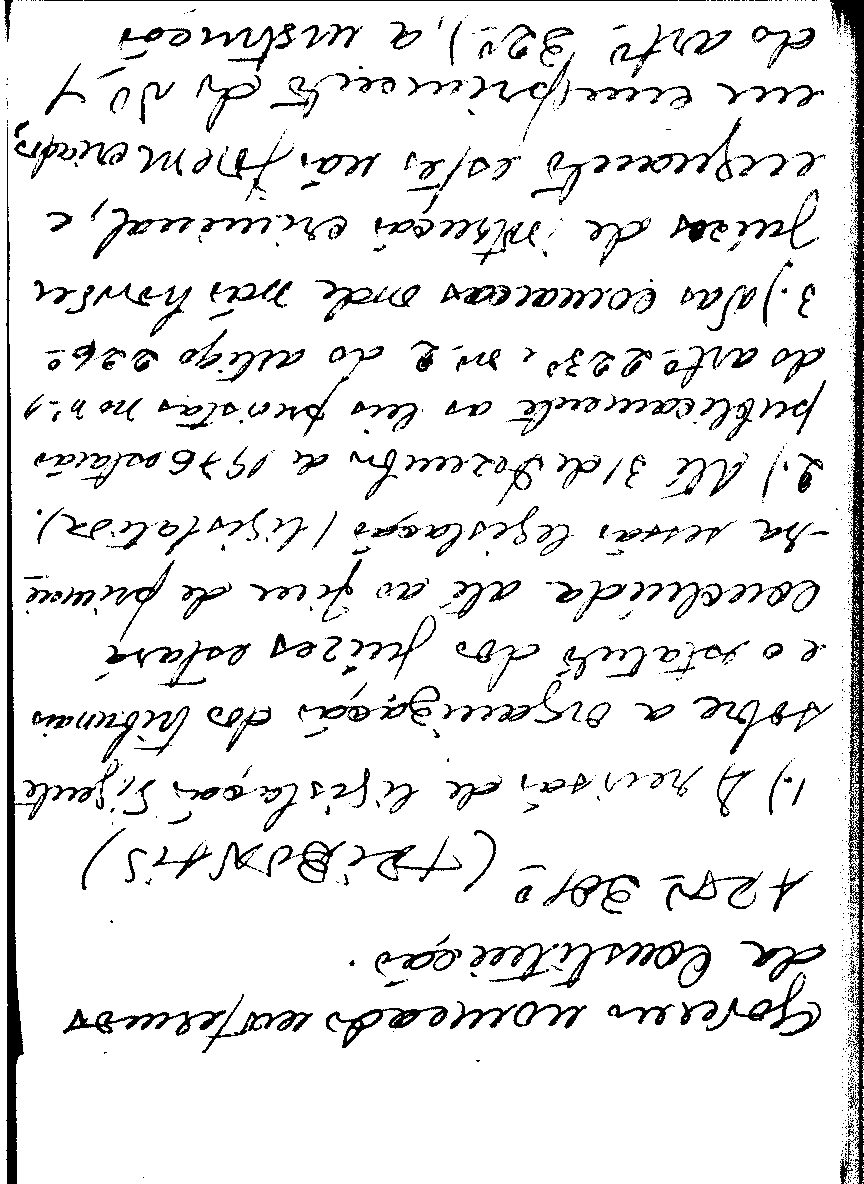 Governo nomeado nos termos
da Constituição.
ARTº 301º (TRIBUNAIS)
1.) A revisão de legislação vigente
sobre a organização dos tribunais
e o estatuto dos juízes estará
concluída até ao fim de primei
-ra sessão legislação (legislativa).
2.) Até 31 de Dezembro de 1976 estarão
publicamente as leis previstas no nº 1
do artº 223º, e nº 2 do artigo 226º
3.) Nas comarcas onde não houver
juízos de instrução criminal, e
enquanto estes não forem criados,
em cumprimento do Nº 4
do artº 32º), a instrução